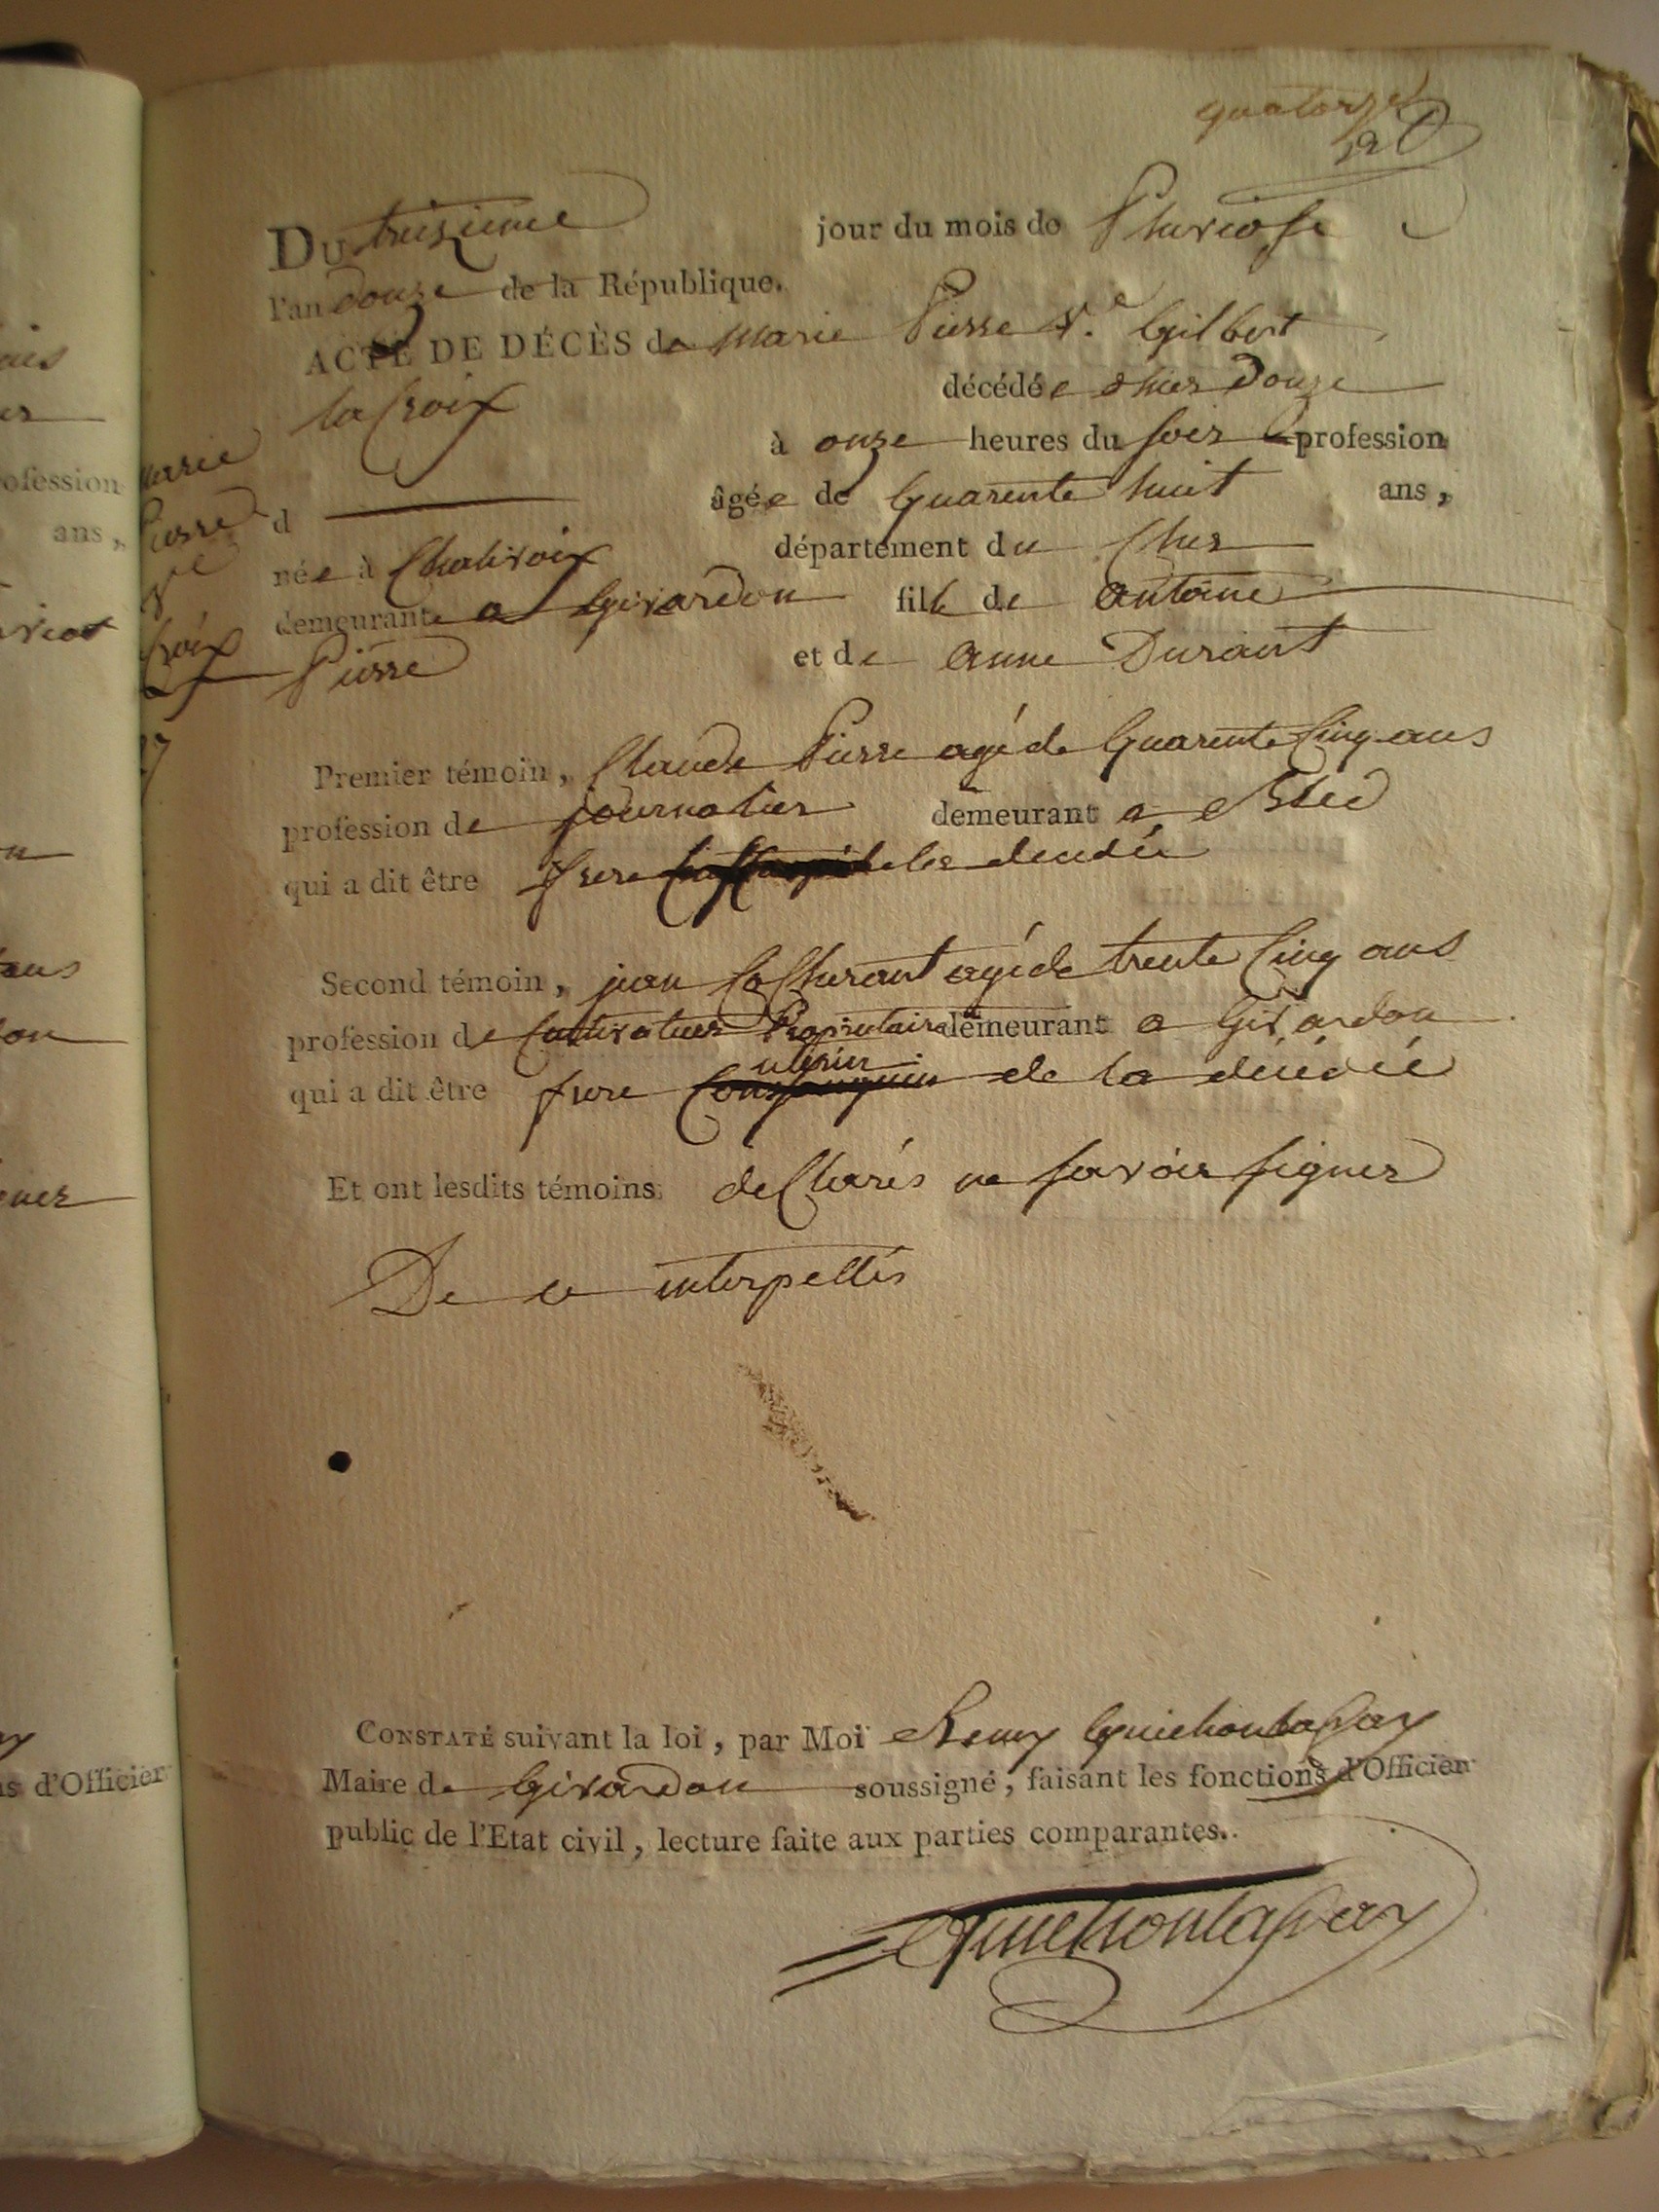 quatorze
Du treizieme jour du mois de Pluviose
l'an douze de la République.
ACTE DE DÉCÈS de Marie Pierre Ve Gilbert
la Croix décédée hier douze
à onze heures du soir profession
d âgée de quarente huit ans,
née à Chalivoix département du Cher
demeurante a Givardon fille de antoine
Pierre et de anne Durant
Premier témoin, Claude Pierre agé de quarente Cinq ans
profession de journalier demeurant a
qui a dit être frere de la décédée
Second témoin, jean agé de trente Cinq ans
profession de Cultivateur Proprietaire demeurant a Givardon
uterin
qui a dit être frere Consanguin de la décédée
Et ont lesdits témoins déClarés ne savoir signer
De ce interpellés
CONSTATÉ suivant la loi, par Moi Remy
Maire de Givardon soussigné, faisant les fonctions d'Officier
public de l'Etat civil, lecture faite aux parties comparantes.
marie
Pierre
Ve
Croix
ofession
ans,
ns d'Officier